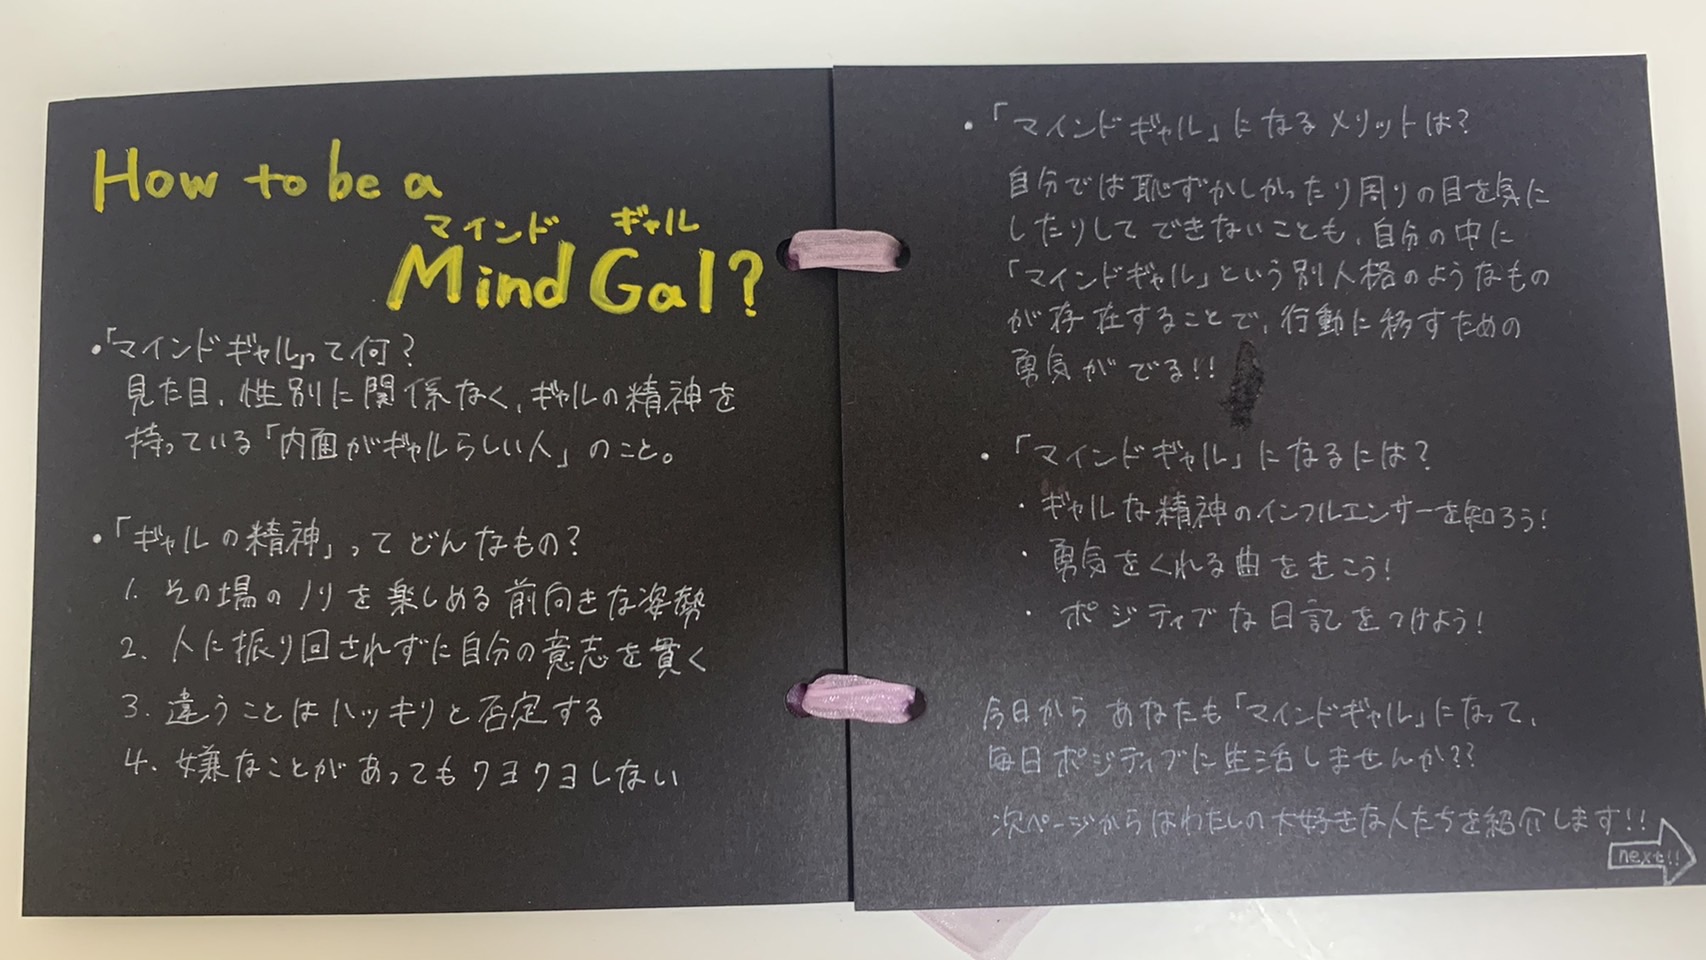 How to be a
マインド ギャル
Mind Gal?
・「マインドギャル」って何?
見た目、性別に関係なく、ギャルの精神を
持っている「内面がギャルらしい人」のこと。
・「ギャルの精神」ってどんなもの?
1. その場のノリを楽しめる前向きな姿勢
2. 人に振り回されずに自分の意志を貫く
3. 違うことはハッキリと否定する
4. 嫌なことがあってもクヨクヨしない
・「マインドギャル」になるメリットは?
自分では恥ずかしかったり周りの目を気に
したりしてできないことも、自分の中に
「マインドギャル」という別人格のようなもの
が存在することで、行動に移すための
勇気がでる!!
・「マインドギャル」になるには?
・ギャルな精神のインフルエンサーを知ろう!
・勇気をくれる曲をきこう!
・ポジティブな日記をつけよう!
今日からあなたも「マインドギャル」になって、
毎日ポジティブに生活しませんか??
次ページからはわたしの大好きな人たちを紹介します!!
next!!